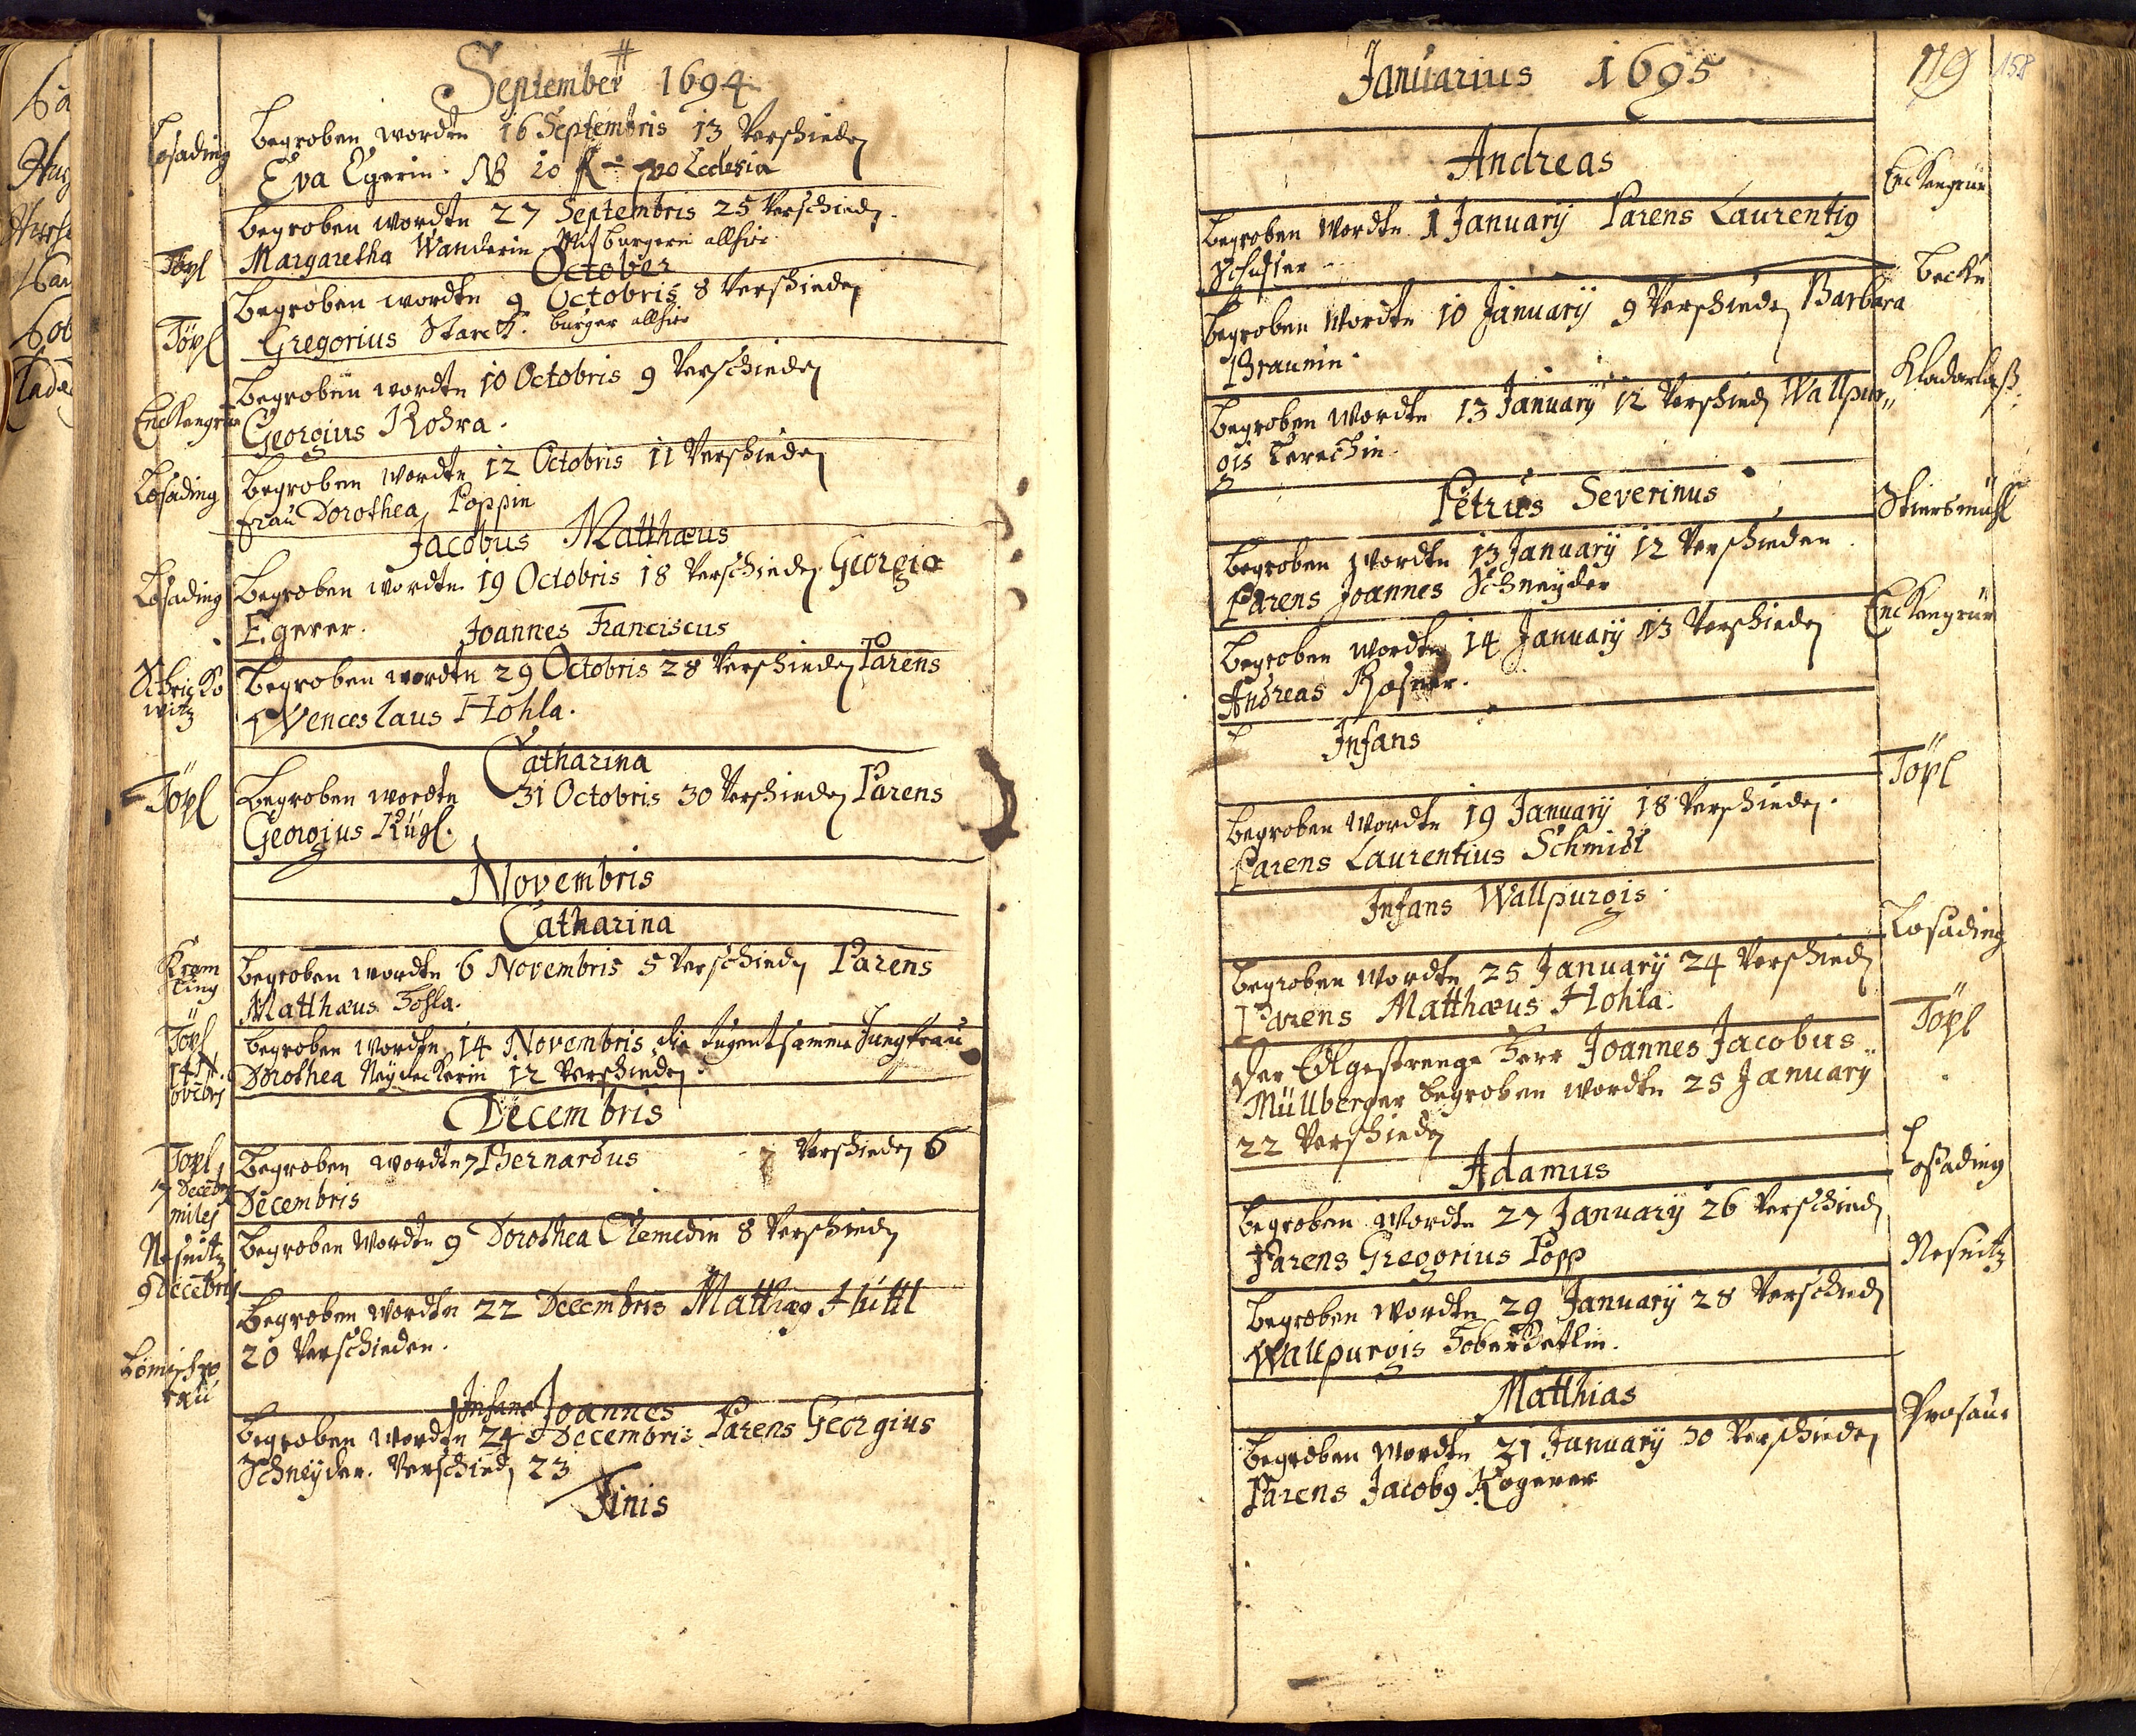 September 1694
Losading
Begroben wordtn 16 Septembris 13 Verschieden
Eva Egerin. NB 20 fl pro Ecclesia
Begroben wordtn 27 Septembris 25 Verschieden.
Töpl
Margaretha Wanderin Mitburgerin allhier
October
Begroben wordtn 9 Octobris 8 Verschieden
Töpl
Gregorius Starck. burger allhier
Begroben wordtn 10 Octobris 9 Verschieden
Enckengrün
Georgius Rohra.
Losading
Begroben wordtn 12 Octobris 11 Verschieden
Frau Dorothea Poppin
Jacobus Matthæus
Losading
Begroben wordtn 19 Octobris 18 Verschieden Georgio
Egerer.
Joannes Franciscus
Schricko
witz
Begroben wordtn 29 Octobris 28 Verschieden Parens
Wenceslaus Hohla.
Catharina
Töpl
Begroben wordtn 31 Octobris 30 Verschieden Parens
Georgius Kügl.
Novembris
Catharina
Kram
ling
Begroben wordtn 6 Novembris 5 Verschieden Parens
Matthæus Hohla.
Töpl
14 N
ovēbris
Begroben wordtn 14 Novembris die Tugentsamme Jungfrau
Dorothea Neydeckerin 12 Verschieden
Decembris
Töpl
7 Decēbr
miles
Begroben wordtn 7 Bernardus 7 Verschieden 6
Decembris
Nesnitz
9 Decēbris
Begroben Wordtn 9 Dorothea Clemedin 8 Verschieden
Begroben wordtn 22 Decembris Matthiæ9 Hüttl
20 Verschieden.
Infans Joannes
Begroben wordtn 24 Decembris Parens Georgius
Schneÿder. Verschieden 23
Finis
119 158
Januarius 1695
Andreas
Enckengrün
Begroben Wordtn 1 Januarÿ Parens Laurenti9
Schuster
Begroben Wordtn 10 Januarÿ 9 Verschieden Barbara
Braunin
Kladerlaß
Begroben Wordtn 13 Januarÿ 12 Verschieden Wallpur
gis Lerechin
Petrus Severinus
Stiersmühl
Begroben wordtn 13 Januarÿ 12 Verschieden
Parens Joannes Schneÿder
Enckengrün
Begroben wordtn 14 Januarÿ 13 Verschieden
Andreas
Infans
Töpl
Begroben Wordtn 19 Januarÿ 18 Verschieden.
Parens Laurentius Schmidl
Infans Wallpurgis
Losading
Begroben Wordtn 25 Januarÿ 24 Verschieden
Parens Matthæus Hohla.
Töpl
Der Edlgestrenge Herr Joannes Jacobus
Müllberger begroben wordtn 25 Januarÿ
22 Verschieden
Adamus
Losading
Begroben Wordtn 27 Januarÿ 26 Verschieden
Parens Gregorius Popp
Nesnitz
Begroben Wordtn 29 Januarÿ 28 Verschieden
Wallpurgis
Matthias
Prosau
Begroben Wordtn 31 Januarÿ 30 Verschieden
Parens Jacob9 Kogerer